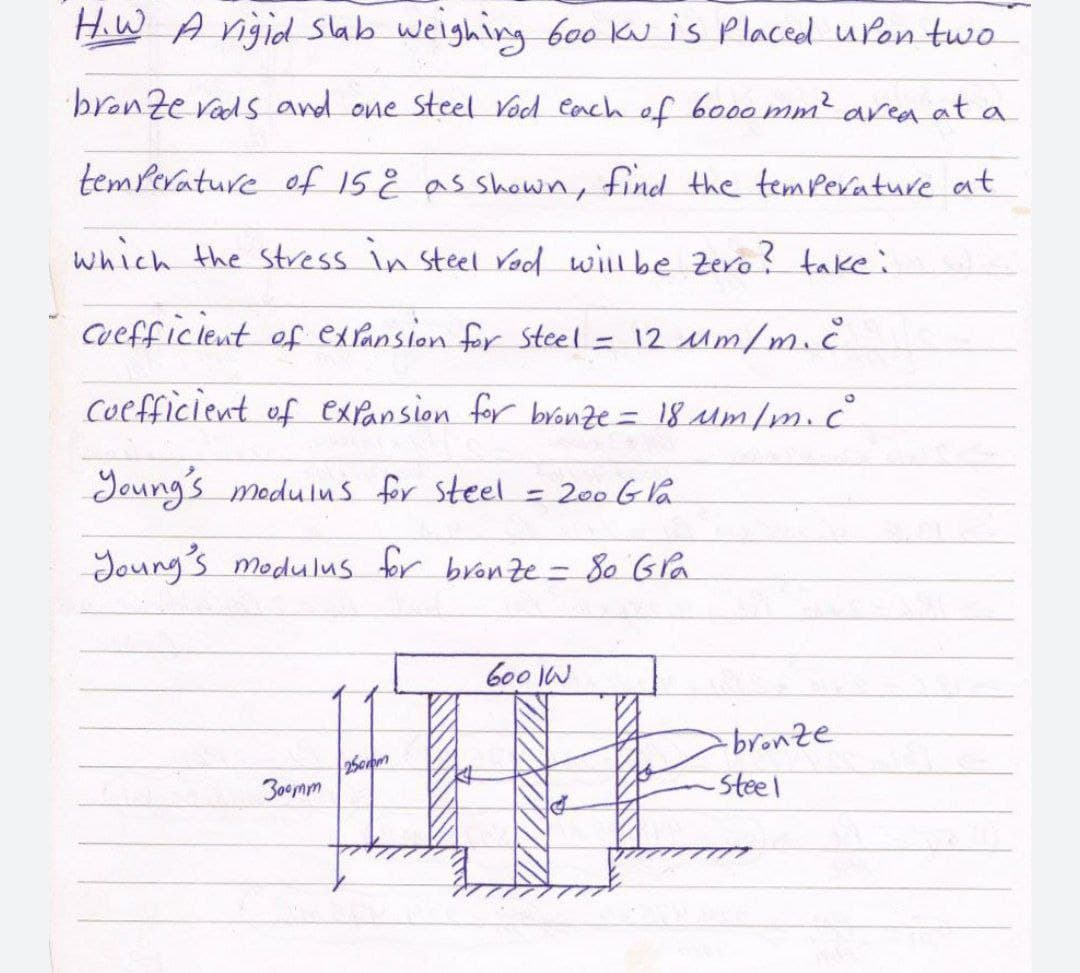 H.W A rigid slab weighing 600 kw is placed upon two
bronze rods and one steel rod each of 6000 mm² area at a
temperature of 15 c° as shown, find the temperature at
which the stress in steel rod will be zero? take:
Coefficient of expansion for steel = 12 µm/m.c°
Coefficient of expansion for bronze = 18 µm/m.c°
Young's modulus for steel = 200 GPa
Young's modulus for bronze = 80 GPa
600 KW
bronze
250mm
300mm
steel